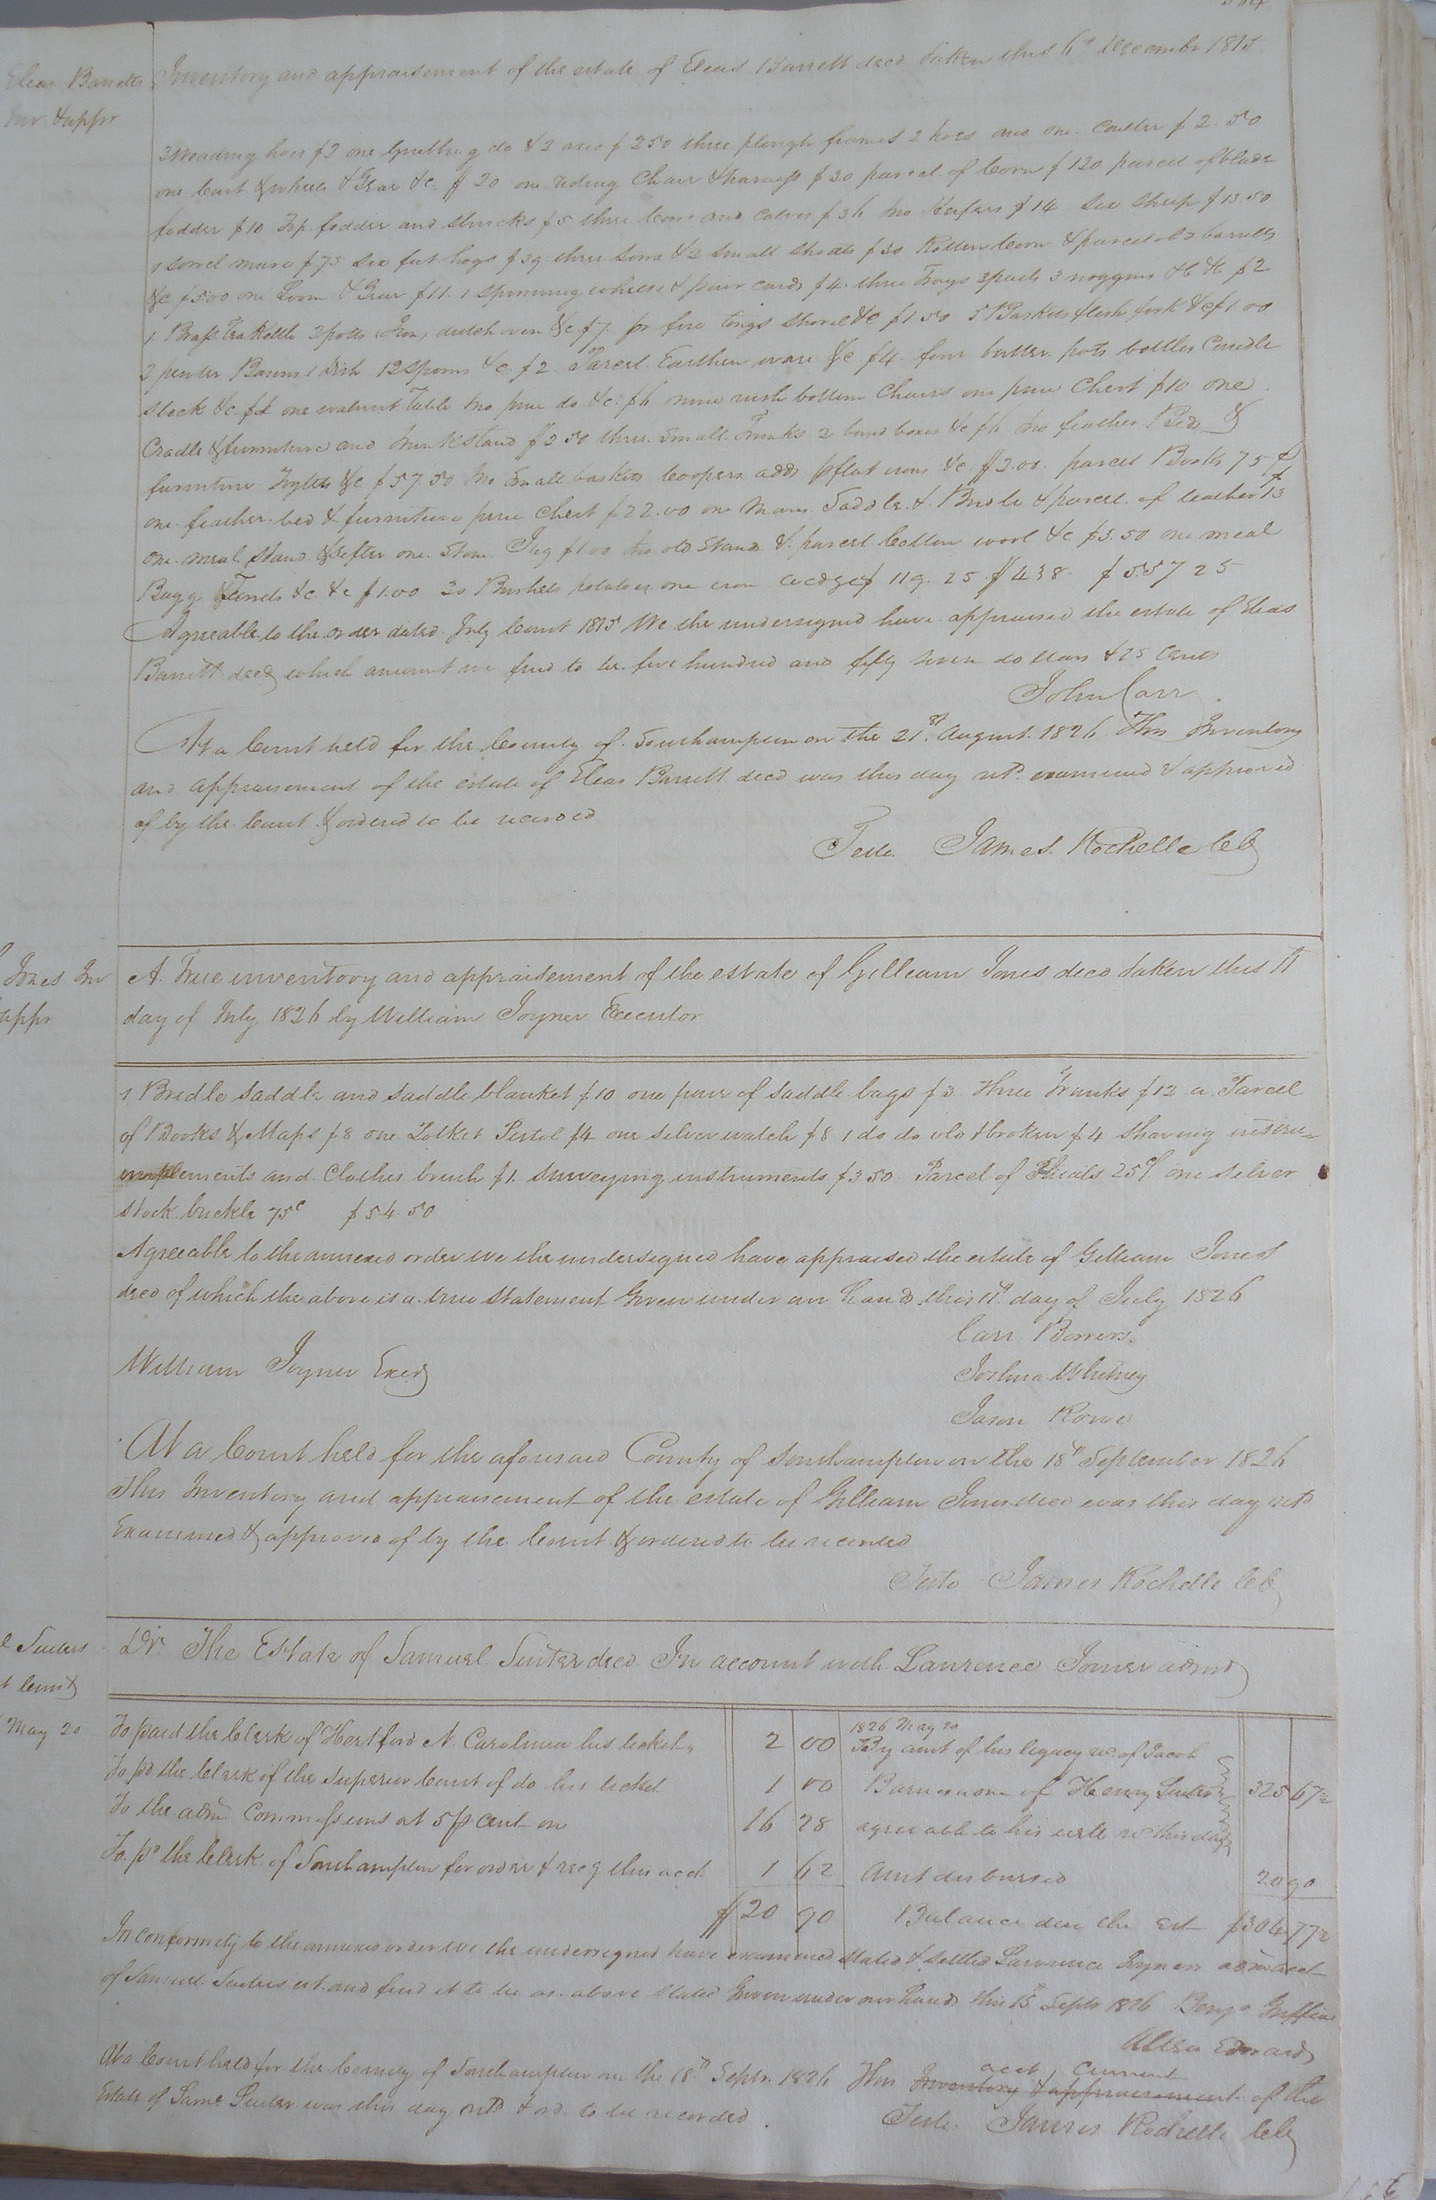 Elias Barretts
Inv &appr
Inventory and appraisement of the estate of Elias Barrett decd taken this 6th december 1815
3 weading hoes $2 one Grubbing do & 2 axes $2.50 three plough frames 2 hoes and one Coulter $2.50
one Cart & wheels & Gear &c $20 one riding Chair & harness $30 parcel of Corn $120 parcel of blade
fodder $10 Top fodder and shucks $5 three Cows and Calves $36 two Heifers $14 Six Sheep $13.50
1 sorrel mare $75 six fat hogs $39 three sows & 2 small shoats $20 Rotten Corn & parcel old barrels
&c $5.00 one Loom & Gear $11. 1 spinning wheel & pair cards $4. three Trays 3 pails 3 noggins &c &c $2
1 Brass Tea Kettle 2 potts (Iron) dutch oven &c $7. pr fire tongs shovel &c $1.50 5 Baskets flesh fork &c $1 00
2 pewter Basons 1 dish 12 spoons &c $2 Parcel Earthen ware &c $4 four butter pots bottles Candle
stock &c one walnut Table two pine do &c $6 nine rush bottom Chairs one pine Chest $10 one
Cradle & furniture and trunk stand $2 50 three small Trunks 2 band boxes &c $6 two feather Beds &
furniture &c $57.50 two small baskets Coopers adds pr flat irons &c $2.00 parcel Books 75¢
one feather bed & furniture pine Chest $22.00 one Mans Saddle & Bridle & parcel of leather $3
one meal stand & sifter one Stone Jug $1.00 two old Stands & parcel Cotton wool &c $3.50 one meal
Bagg &c &c $1.00 30 Bushels potatoes one iron wedge $119.25 $438. $557 25
Agreeable to the order dated July Court 1815 We the undersigned have appraised the estate of Elias
Barrett decd which amount we find to be five hundred and fifty seven dollars & 25 Cents
John Carr
At a Court held for the County of Southampton on the 21st August 1826 This Inventory
and appraisement of the estate of Elias Barrett decd was this day retd examined & approved
of by the Court & ordered to be recorded
Teste James Rochelle Clk
Jones Inv
appr
A True inventory and appraisement of the estate of Gilliam Jones decd taken this 11
day of July 1826 by William Joyner Executor
1 Bridle saddle and saddle blanket $10 one pair of saddle bags $3 three Trunks $12 a Parcel
of Books & Maps $8 one Pocket Pistol $4 one silver watch $8 1 do do old & broken $4 shaving
implements and Clothes brush $1. surveying instruments $3 50 Parcel of 25¢ one silver
stock buckle 75c $54.50
Agreeable to the annexed order we the undersigned have appraised the estate of Gilliam Jones
decd of which the above is a true statement Given under our hands this 11th day of July 1826
Carr Bowers
William Joyner Exer
Joshua Whitney
Jason Rowe
At a Court held for the aforesaid County of Southampton on the 18th September 1826
This Inventory and appraisement of the estate of Gilliam Jones decd was this day retd
Examined & approved of by the Court & ordered to be recorded
Teste James Rochelle Clk
Suiters
Dr. The Estate of Samuel Suiter decd In account with Lawrence Joyner admr
May 20
To paid the Clerk of Hertford N. Carolina his ticket 2 00
To pd the Clerk of the Superior Court of do his ticket 1 00
To the adm Commissions at 5 pr cent on 16 28
To pd the Clerk of Southampton for order & recg this acct 1 62
$ 20 90
1826 May 20
By amt of his legacy re of Jacob
Barnes adm of Henry Suiter 325 67½
agreeable to his will re this day
Amt disbursed 20 90
Balance due the Est $304 77½
In conformity to the annexed order we the undersigned have examined stated & settled Lawrence Joyners adm acct
of Samuel Suiters est and find it to be as above stated Given under our hands this 15th Septr 1826 Benjn Griffin
Allen Edwards
At a Court held for the County of Southampton on the 18th Septr 1826 This Inventory & appraisement of the
acct Current
Estate of Saml Suiter was this day retd & ord. to be recorded
Teste James Rochelle Clk